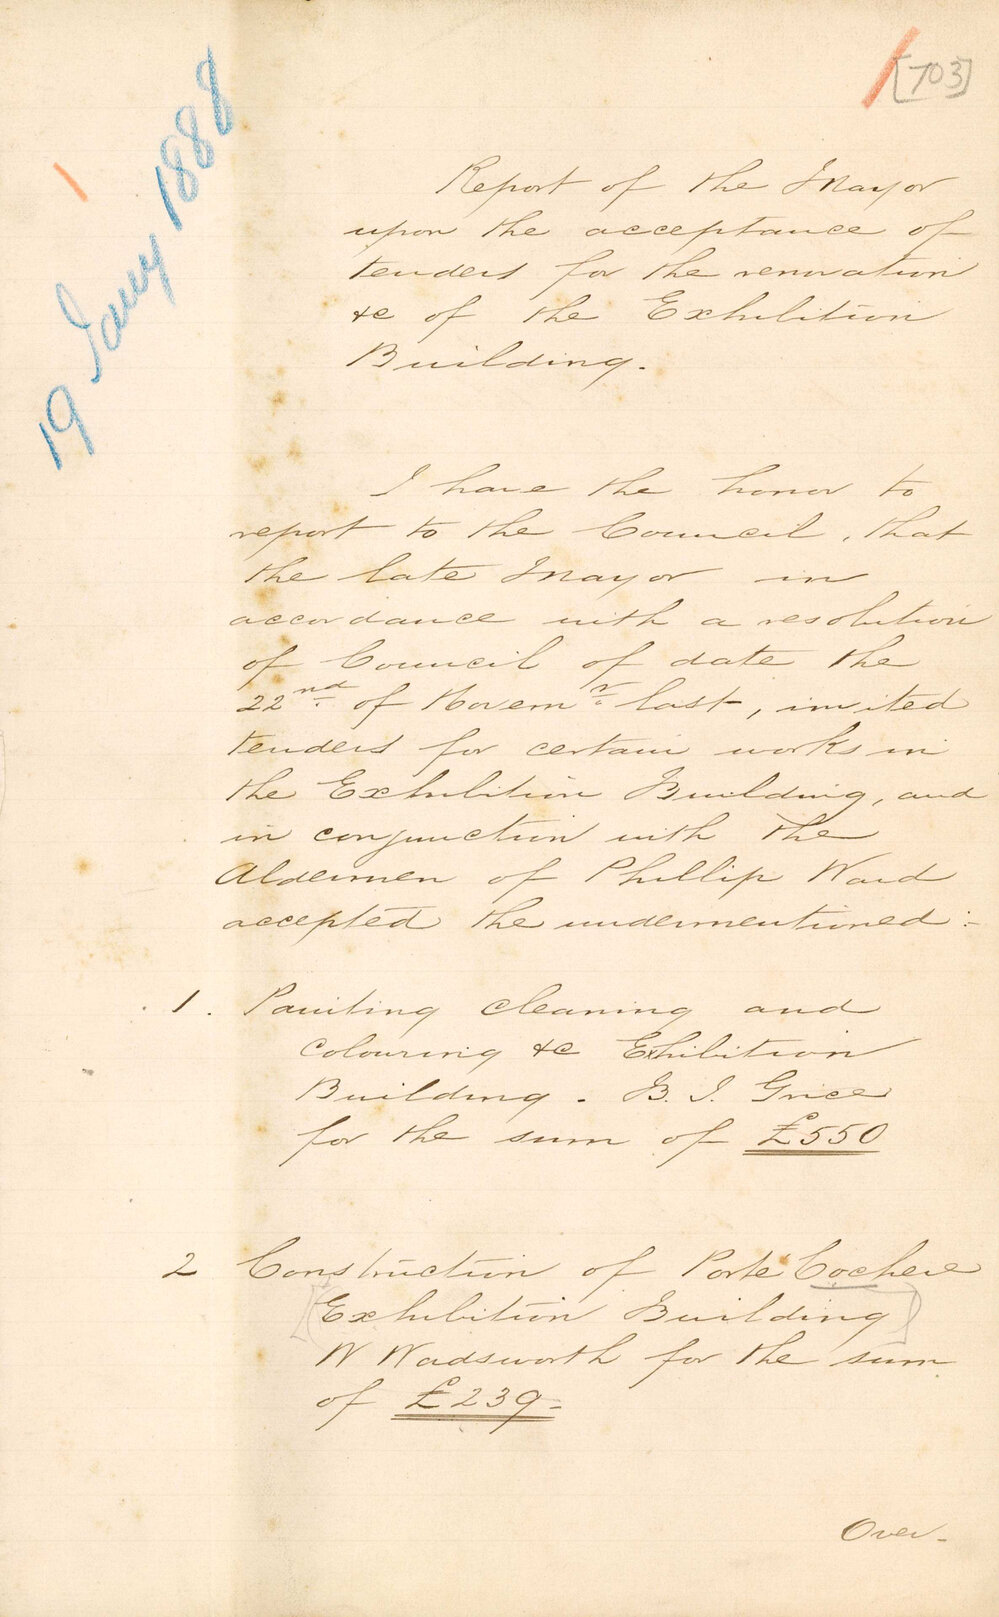 [703]
19 Jany 1888
1
Report of the Mayor
upon the acceptance of
tenders for the renovation
&c of the Exhibition
Building.
I have the honor to
report to the Council, that
the late Mayor in
accordance with a resolution
of Council of date the
22nd. of Novemr. last, invited
tenders for certain works in
the Exhibition Building, and
in conjunction with the
Aldermen of Phillip Ward
accepted the undermentioned:-
1. Painting cleaning and
colouring &c Exhibition
Building. B. J. Grice
for the sum of £550
2 Construction of Porte Cochere
[Exhibition Building]
W Wadsworth for the sum
of £239-
Over-